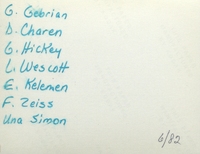 G. Gebrian
D. Charen
G. Hickey
L. Wescott
E. Kelemen
F. Zeiss
Una Simon
6/82